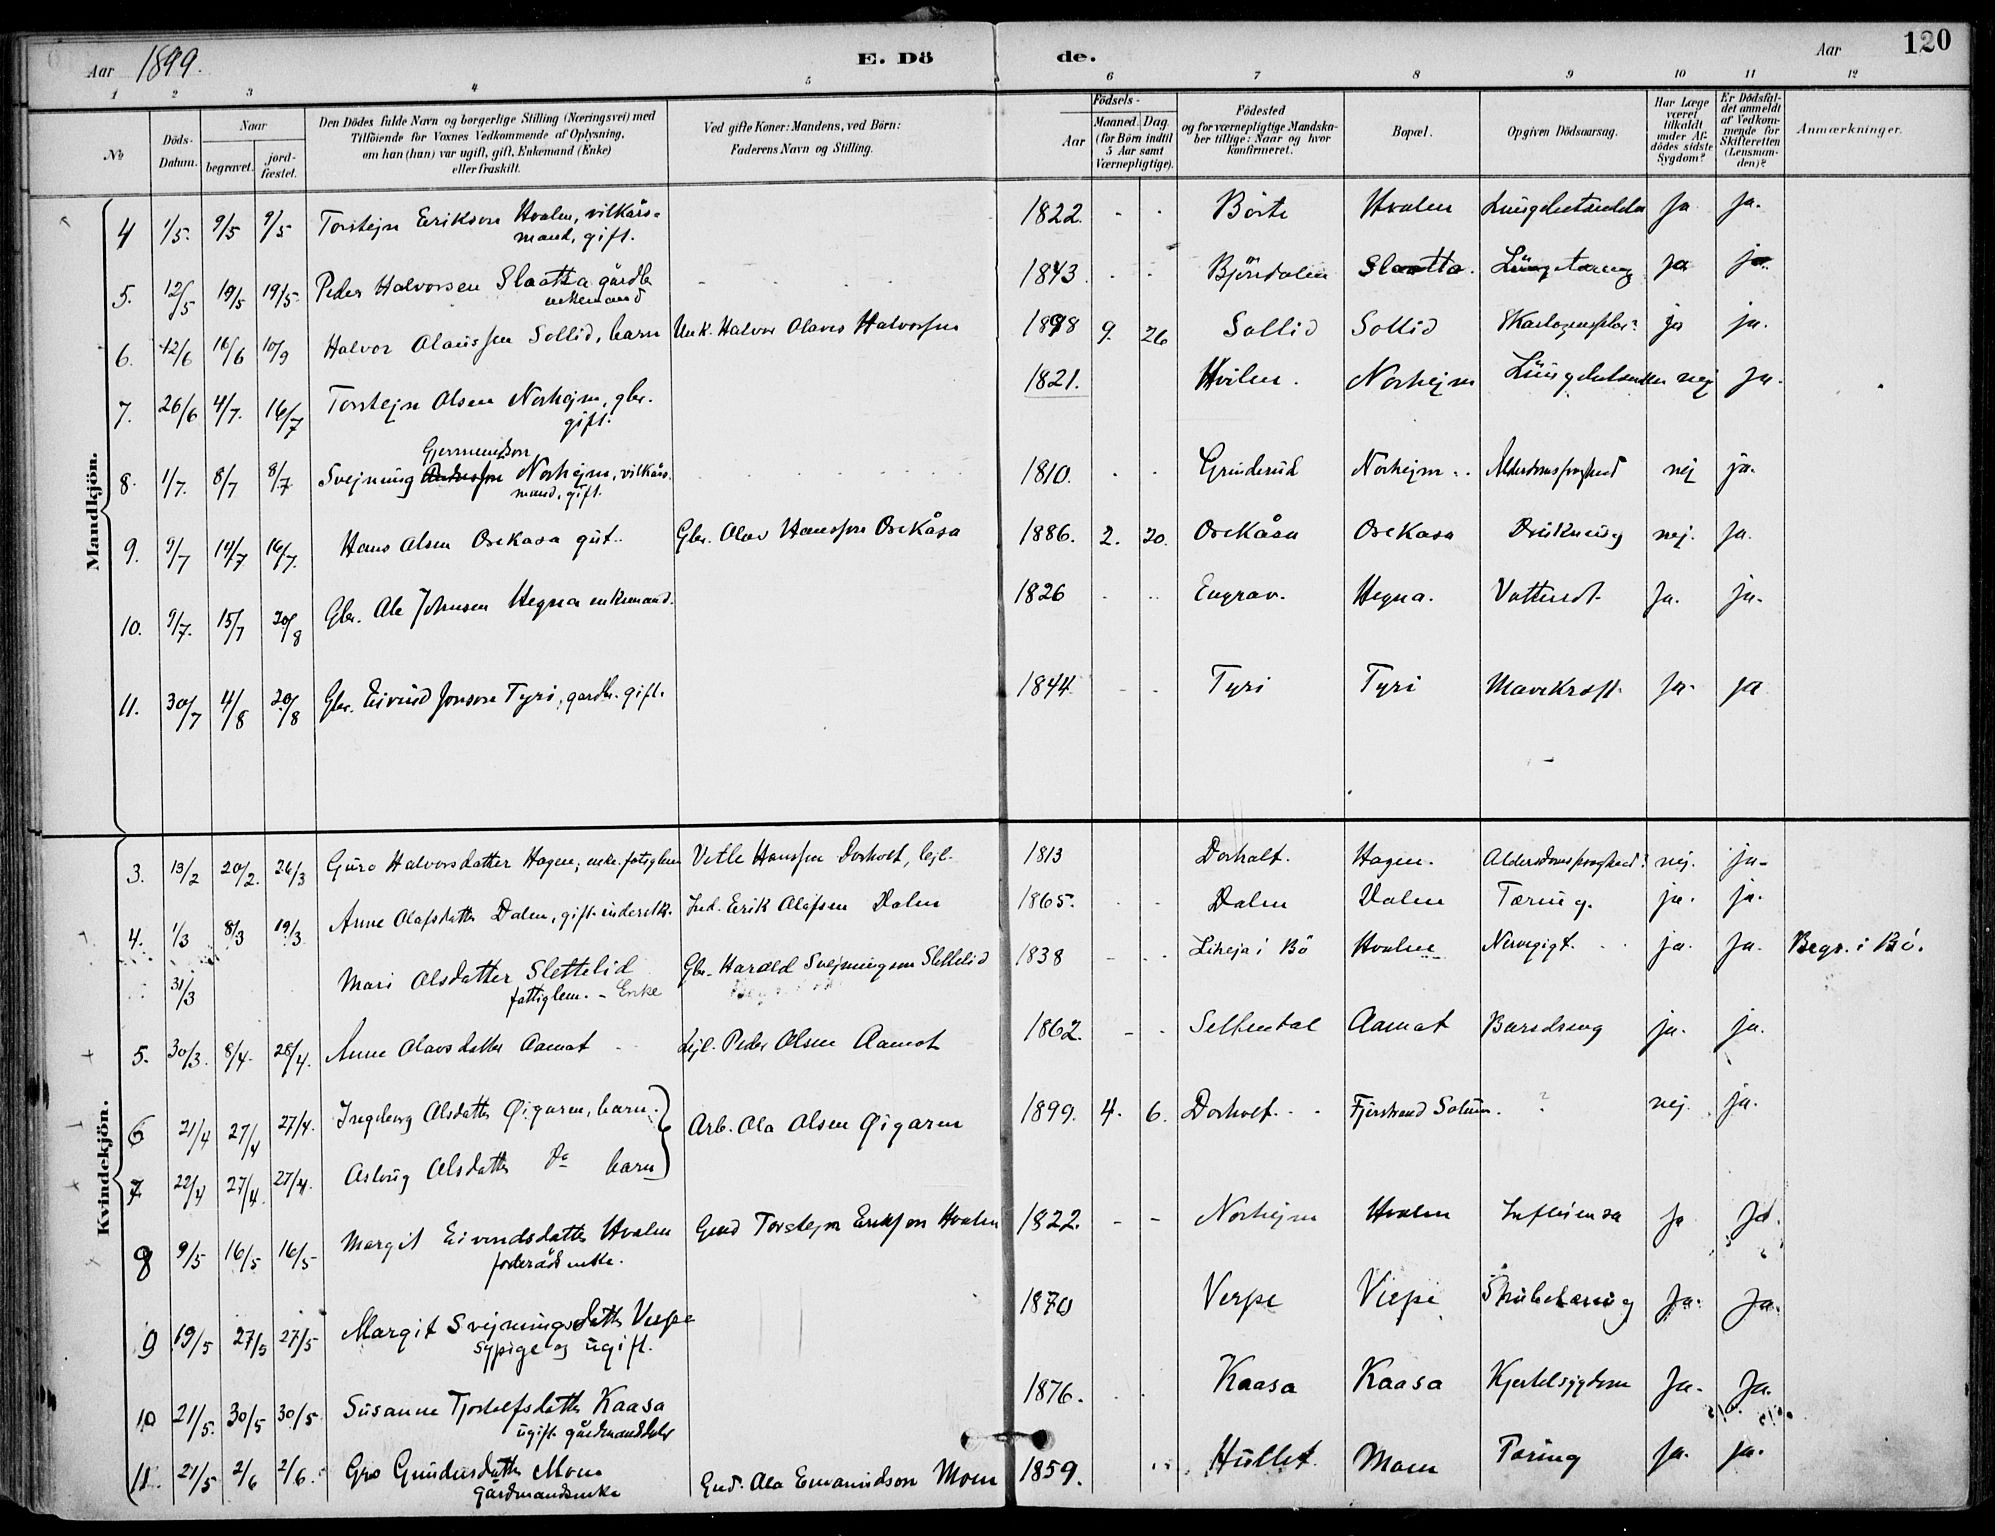 Aar 1899. E. Dö de. Aar 120
1 2 3 4 5 6 7 8 9 10 11 12
No
Döds-Datum.
Naar
begravet.
jord-fæstet.
Den Dödes fulde Navn og borgerlige Stilling (Næringsvei) med
Tilföiende for Voxnes Vedkommende af Oplysning,
om han (hun) var ugift, gift, Enkemand (Enke)
eller fraskilt.
Ved gifte Koner: Mandens, ved Börn:
Faderens Navn og Stilling.
Födsels-
Aar
Maaned. Dag.
(for Börn indtil
5 Aar samt
Værnepligtige).
Födested
og for værnepligtige Mandska-
ber tillige: Naar og hvor
konfirmeret.
Bopæl.
Opgiven Dödsaarsag.
Har Læge
været
tilkaldt
under Af-
dödes sidste
Sygdom?
Er Dödsfal-
det anmeldt
af Vedkom-
mende for
Skifteretten
(Lensman-
den)?
Anmærkninger.
Mandkjön.
4 1/5. 9/5 9/5 Torstejn Erikson Hvalen, vilkårs- 1822. - - Börte Hvalen ja ja.
mand, gift.
5. 12/5 19/5 19/5 Peder Halvorsen Slaatta gårdbr 1843 - - Björndalen Slaatta. Lungetæring ja ja
enkemand
6. 12/6 16/6 10/9 Halvor Olaussen Sollid, barn Unk. Halvor Olaves Halvorsen 1898 9. 26 Sollid Sollid ja ja.
7. 26/6 4/7. 16/7 Torstejn Olsen Norhejm, gbr. 1821. Hvilen. Norhejm nej ja.
gift.
Gjermundson
8. 1/7. 8/7 8/7 Svejnung Norhejm, vilkårs- 1810. - - Grinderud Norhejm Alderdomssvaghed nej ja.
mand, gift.
9. 9/7 16/7. Hans Olsen Orekasa gut. Gbr. Olav Hansson Orekåsa 1886. 2. 20. Orekåsa Orekasa Drukning nej. ja.
10. 9/7. 15/7 20/8 Gbr. Ole Johnsen Hegna enkemand. 1826 - - Engrav. Hegna. Vattersot. ja. ja.
11. 30/7 4/8 20/8 Gbr. Eivind Jonson Tyri, gardbr. gift. 1844 - - Tyri Tyri Mavekræft. ja. ja
Kvindekjön.
3. 13/2 20/2. 26/3 Guro Halvorsdatter Hagen, enke. fatiglem Vetle Hansson Dorholt, lejl. 1813 Dorholt. Hagen. Alderdomssvaghed nej. ja.
4. 1/3 8/3 19/3 Anne Olafsdatter Dalen, gift inderstk. Ind. Erik Olafsen Dalen 1865. - - Dalen Dalen Tæring. ja. ja.
31/3 Mari Olsdatter Slettelid Gbr. Harald Svejnungson Slettelid 1838 - - i Bö Hvalen Nervegigt. ja. ja. Begr. i Bö.
fattiglem. - Enke
5. 30/3. 8/4. 28/4. Anne Olavsdatter Aamot Lejl. Peder Olsen Aamot 1862. - - Selfendal Aamot Barsdrang ja. ja.
6 21/4 27/4 27/4. Ingeborg Olsdatter Øigaren, barn. Arb. Ola Olsen Øigaren 1899. 4. 6. Dorholt. Fjerstrand Solum. ? nej. ja.
7 22/4 27/4. 27/4. Aslaug Olsdatter Do barn
8 9/5 16/5 16/5 Margit Eivindsdatter Hvalen Gmd Torstejn Erikson Hvalen 1822. - - Norhejm Hvalen Influensa ja ja.
foderåds enke.
9 19/5 27/5 27/5 Margit Svejnungsdatter Verpe 1870 Verpe Verpe Strubetæring ja. ja.
sypige og ugift.
10 21/5. 30/5 30/5. Susanne Tjostolfsdatter Kaasa 1876. Kaasa Kaasa Kjertelsygdom ja. ja.
ugift
11. 21/5 2/6 2/6. Gro Gundersdatter Moen Gmd. Ola Emanuelson Moen 1859. Hullet. Moen Tæring ja. ja.
gårdmandsenke